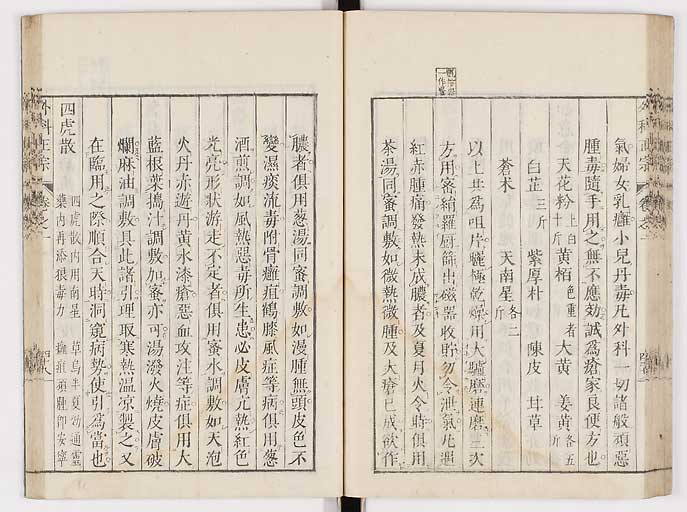 氣婦女乳癰小兒丹毒凡外科一切諸般頑惡
腫毒隨手用之無不應効誠為瘡家良便方也
天花粉 上白十斤 黃栢 色重者 大黃 姜黃 各五斤
白芷 三斤 紫厚朴 陳皮 甘草
蒼朮 天南星 各二斤
以上共為咀片曬極乾燥用大驢磨連磨三次
方用蜜絹羅厨篩出磁器收貯勿令泄氣凡遇
紅赤腫痛發熱未成膿者及夏月火令時俱用
茶湯同蜜調敷如微熱微腫及大瘡已成欲作
膿者俱用葱湯同蜜調敷如漫腫無頭皮色不
變濕痰流毒附骨癰疽鶴膝風症等病俱用葱
酒煎調如風熱惡毒所生患必皮膚亢熱紅色
光亮形狀游走不定者俱用蜜水調敷如天泡
火丹赤遊丹黃水漆瘡惡血攻注等症俱用大
藍根葉搗汁調敷加蜜亦可湯潑火燒皮膚破
爛麻油調敷具此諸引理取寒熱溫凉製之又
在臨用之際順合天時洞窺病勢使引為當也
四虎散 四虎散內用南星 草烏半夏効通靈
藥內再添狠毒力 癰疽頑腫即安寧
外科正宗 卷之一